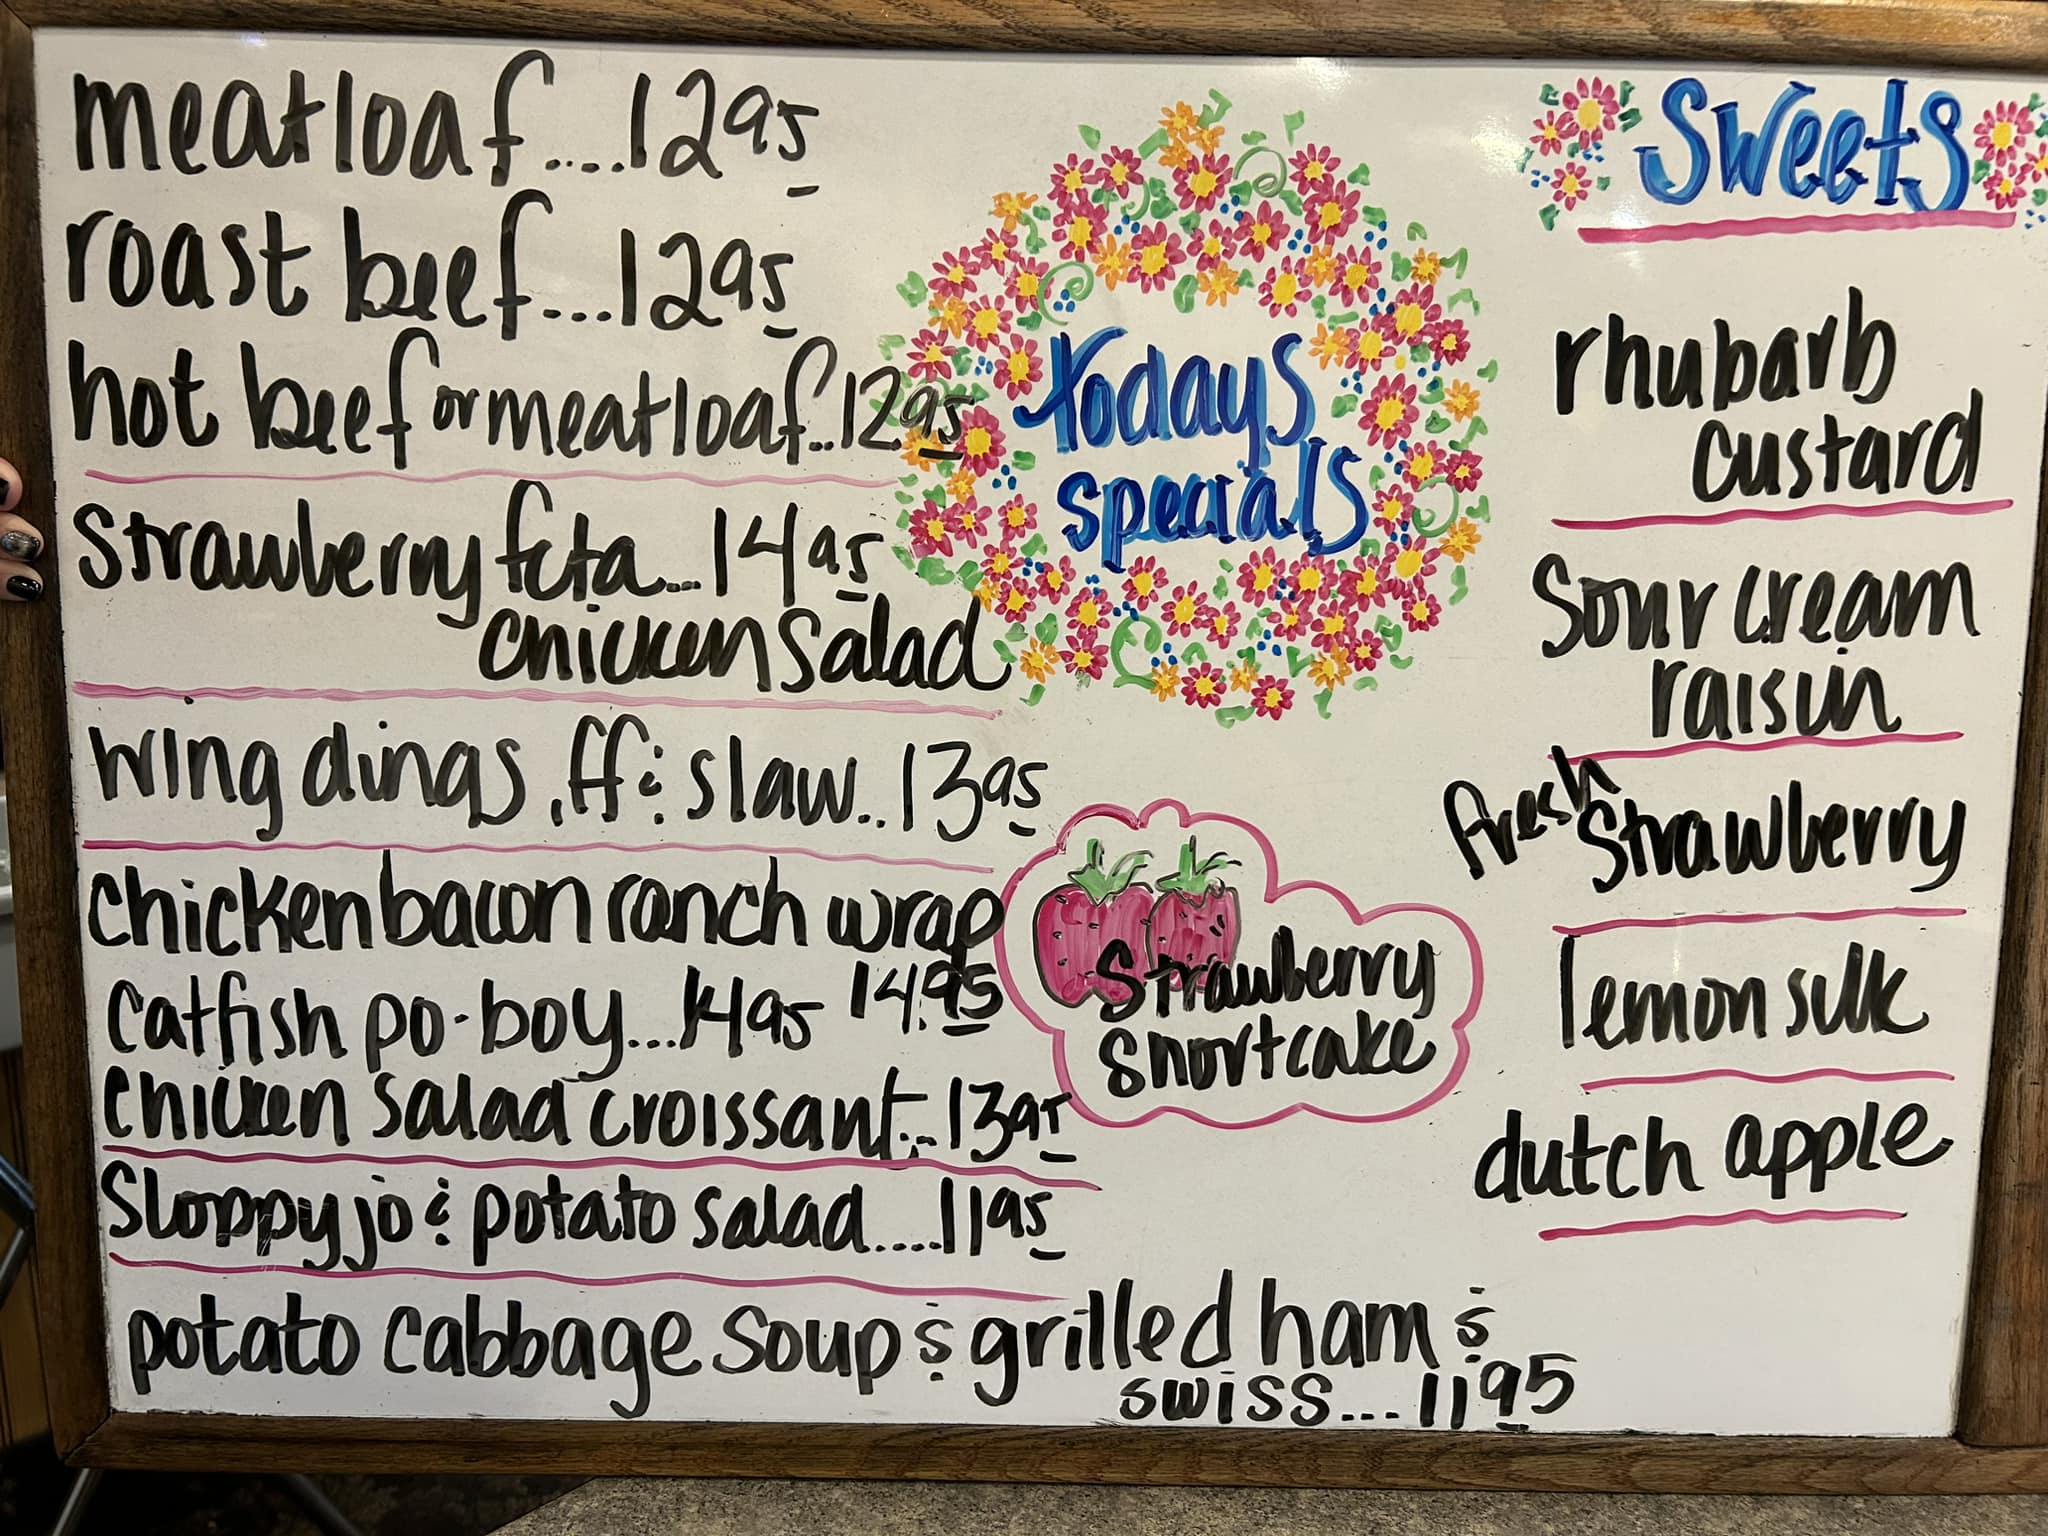 meatloaf....12 95
roast beef...12 95
hot beef or meatloaf..12 95
Strawberry feta...14 95
chicken salad
wing dings, ff & slaw..13 95
chicken bacon ranch wrap
14.95
catfish po-boy...14 95
chicken salad croissant...13 95
Sloppy jo & potato salad.....11 95
potato cabbage soup & grilled ham &
swiss...11 95
todays
specials
Strawberry
shortcake
Sweets
rhubarb
custard
Sour cream
raisin
fresh Strawberry
lemon silk
dutch apple